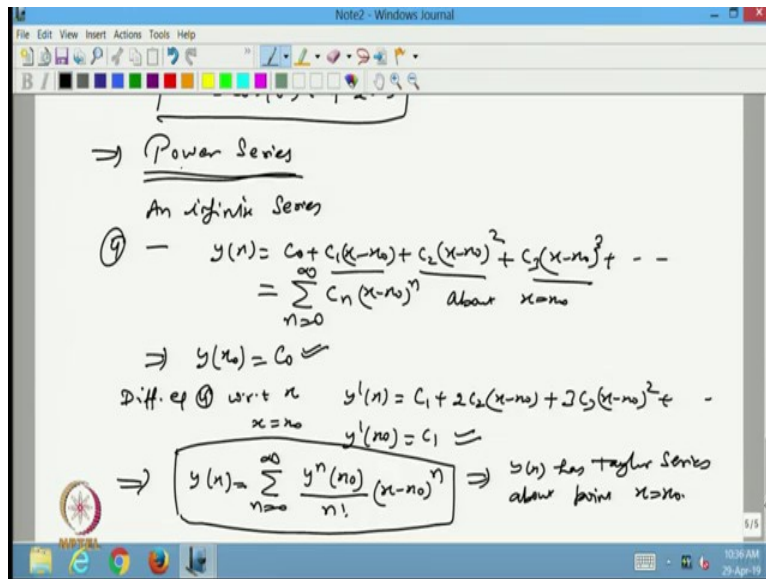 Note2 - Windows Journal
File Edit View Insert Actions Tools Help
B I
⇒ Power Series
An infinite Series
④ — y(x) = C₀ + C₁(x-x₀) + C₂(x-x₀)² + C₃(x-x₀)³ + - -
= ∑_{n=0}^{∞} Cₙ(x-x₀)ⁿ about x=x₀
⇒ y(x₀) = C₀
Diff. eq ④ w.r.t x y'(x) = C₁ + 2C₂(x-x₀) + 3C₃(x-x₀)² + -
x=x₀ y'(x₀) = C₁
⇒ y(x) = ∑_{n=0}^{∞} yⁿ(x₀)/n! (x-x₀)ⁿ ⇒ y(x) has Taylor Series
about point x=x₀.
5/5
NPTEL
10:36 AM
29-Apr-19